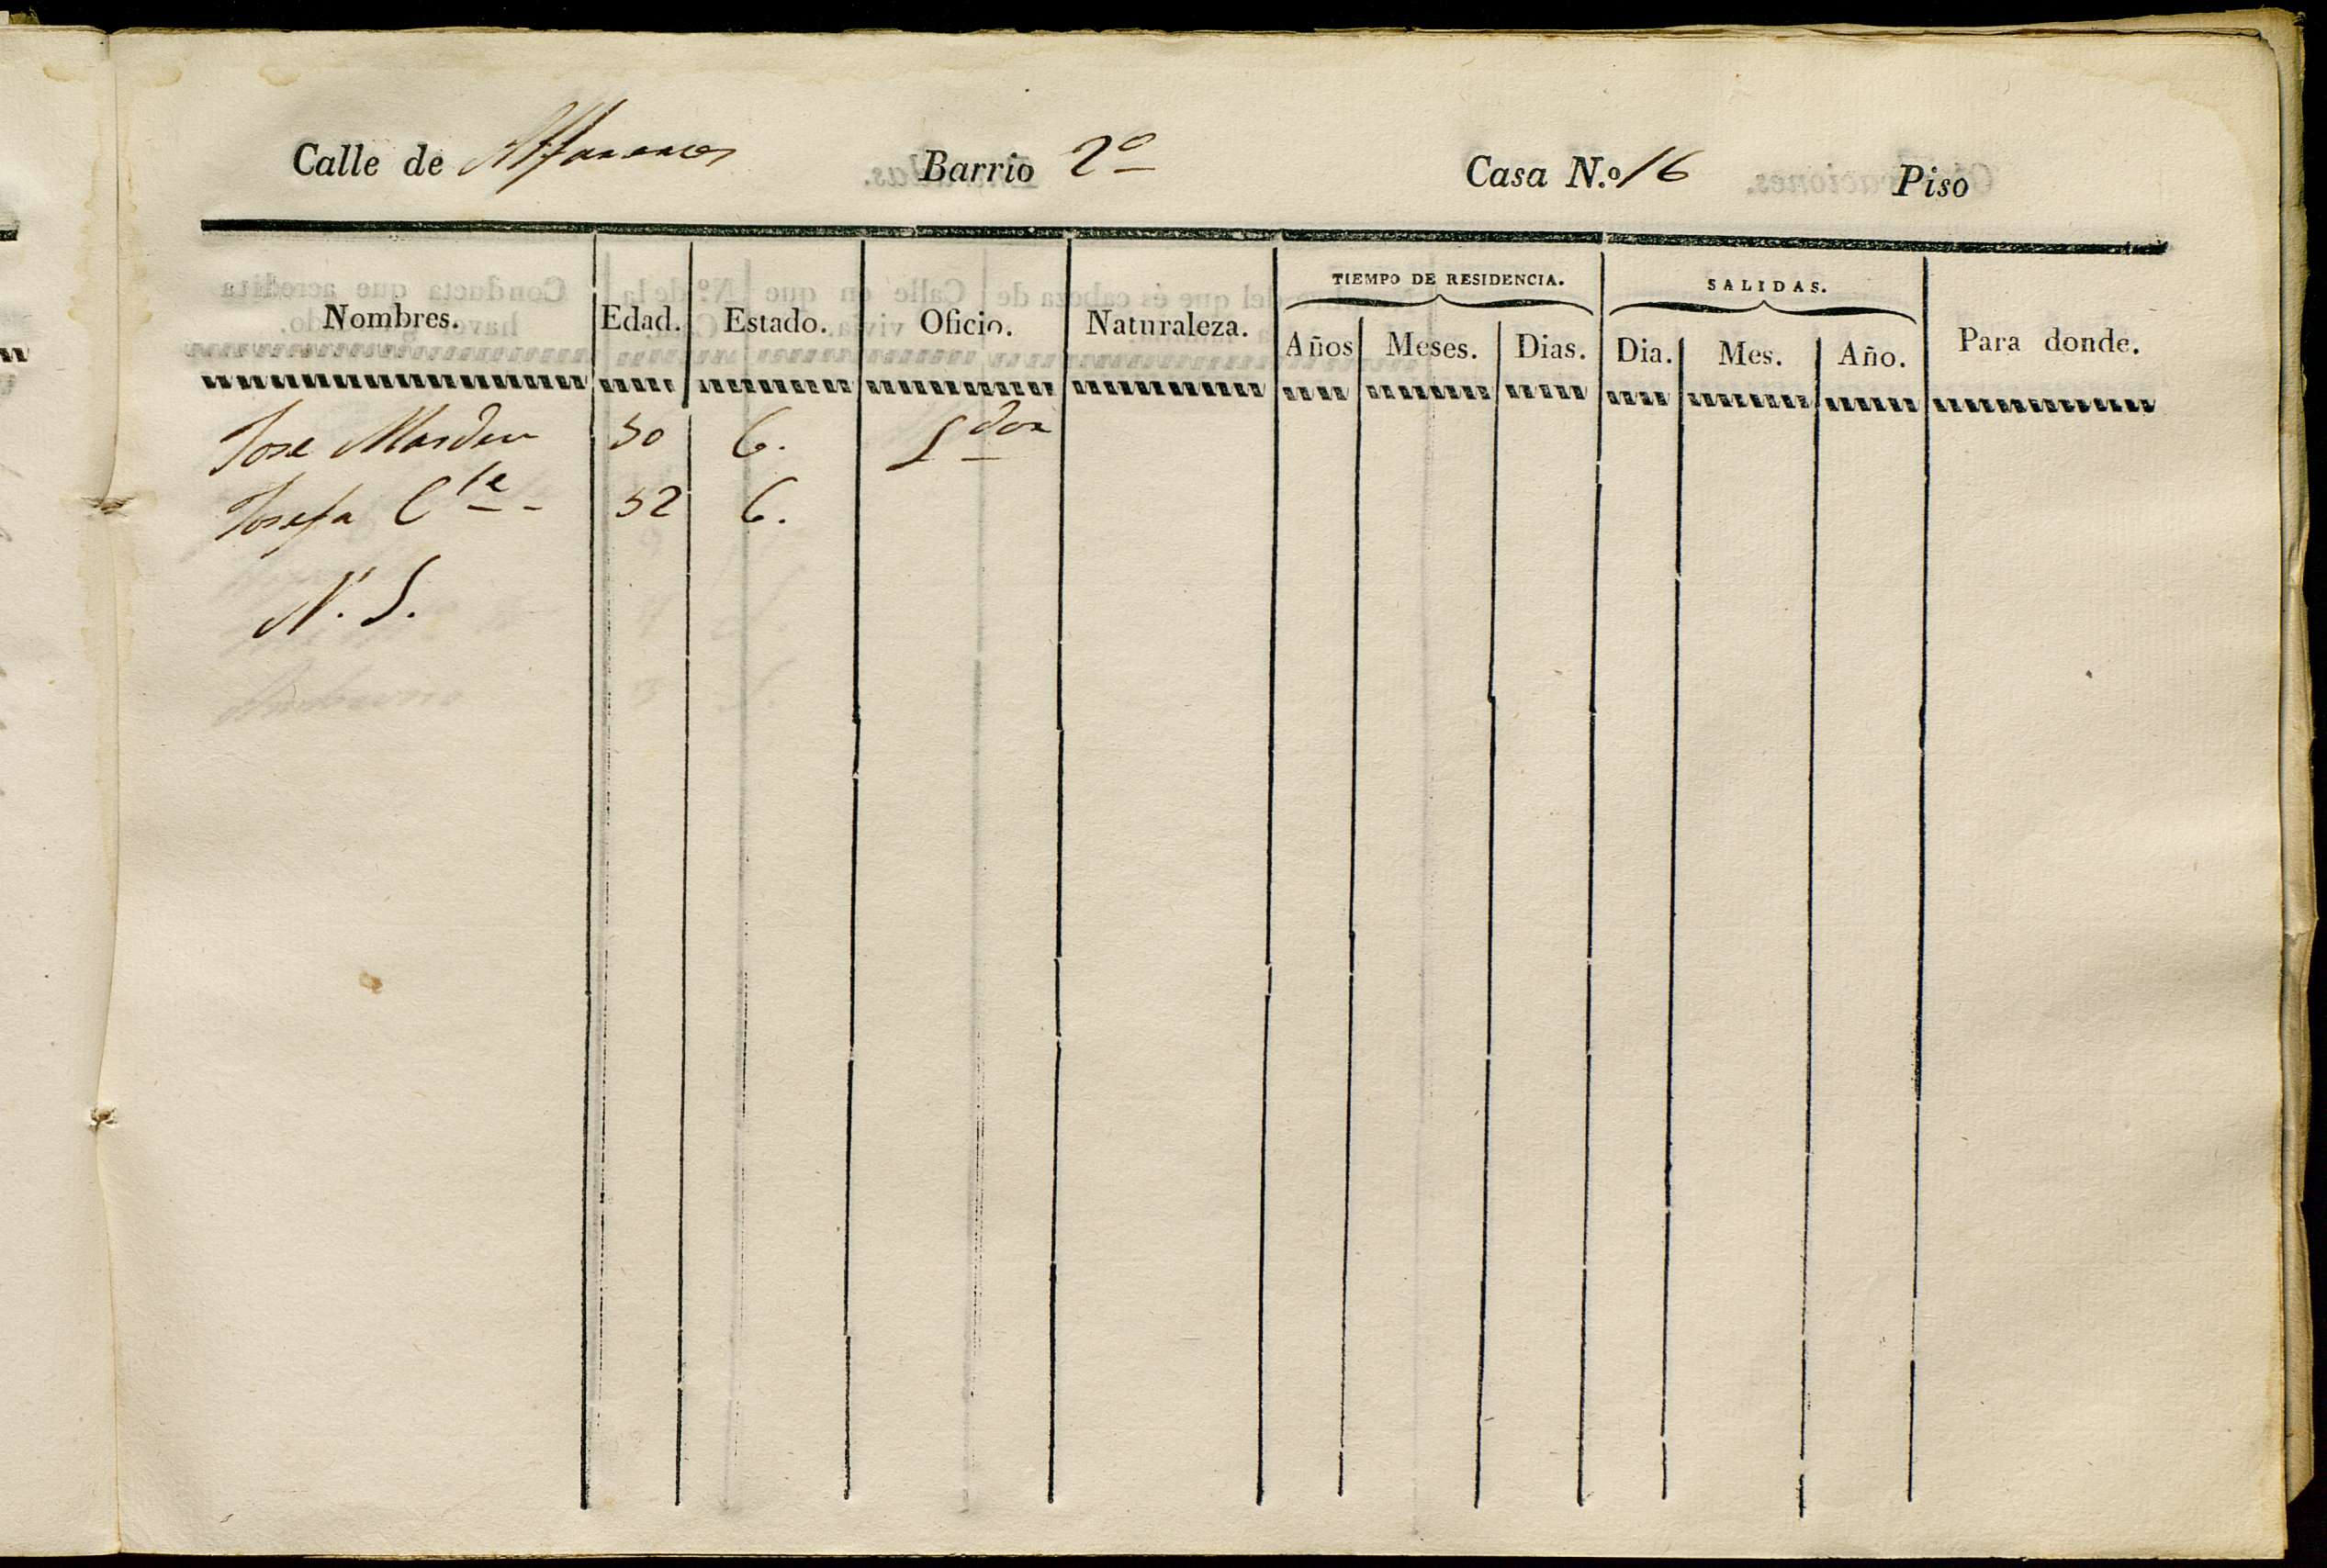 Calle de Barrio 2º Casa N.º 16 Piso
Nombres. Edad. Estado. Oficio. Naturaleza. TIEMPO DE RESIDENCIA. SALIDAS. Para donde.
Años Meses. Dias. Dia. Mes. Año.
Jose 50 C. Sdor
Josefa Cte 52 C.
N. S.